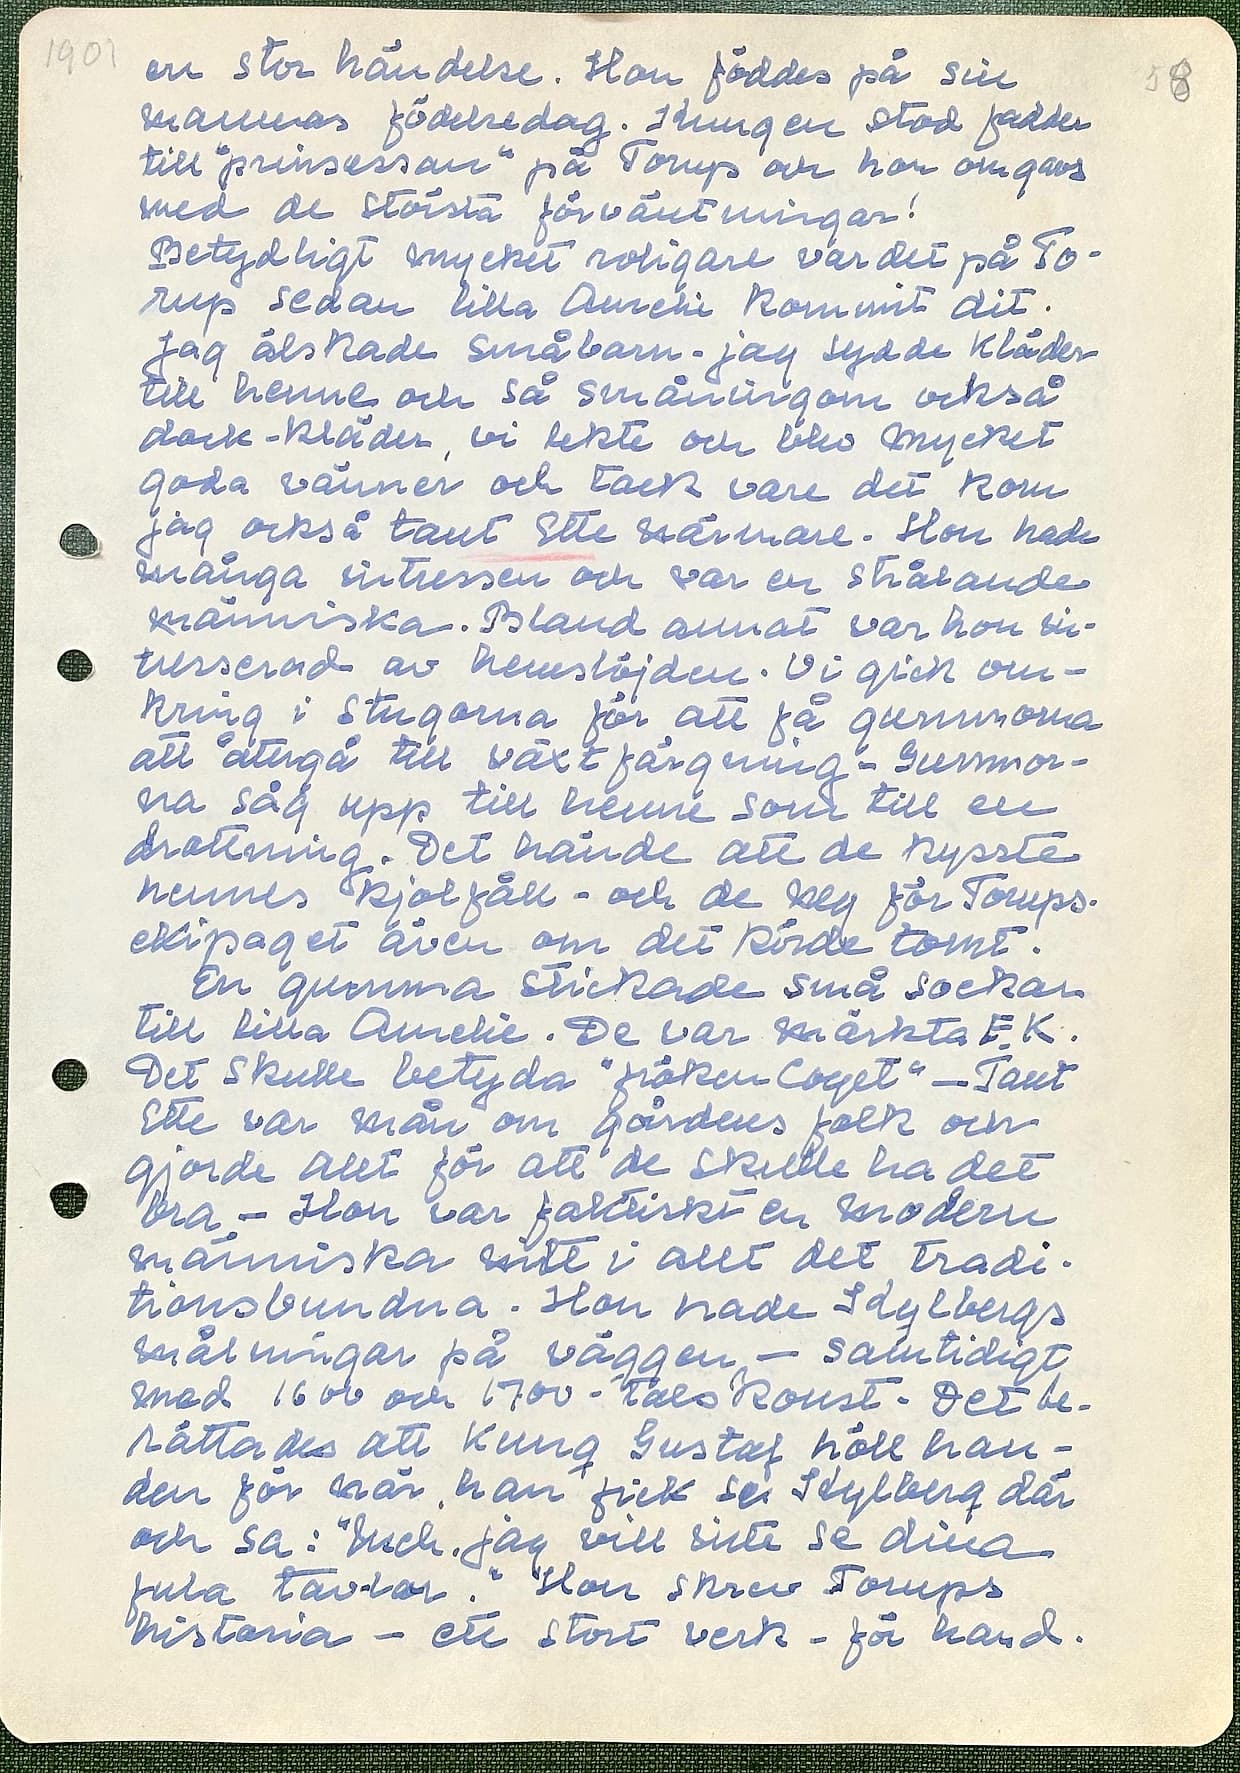 1901
58
en stor händelse. Hon föddes på sin
mammas födelsedag. Kungen stod fadder
till "prinsessan" på Torup och hon omgavs
med de största förväntningar!
Betydligt mycket roligare var det på To-
rup sedan lilla Amelie kommit dit.
Jag älskade småbarn - jag sydde kläder
till henne och så småningom också
dock-kläder, vi lekte och blev mycket
goda vänner och tack vare det kom
jag också tant Ette närmare. Hon hade
många intressen och var en strålande
människa. Bland annat var hon in-
tresserad av hemslöjden. Vi gick om-
kring i stugorna för att få gummorna
att återgå till växtfärgning - Gummor-
na såg upp till henne som till en
drottning. Det hände att de kysste
hennes kjolfåll - och de neg för Torups-
ekipaget även om det körde tomt.
En gumma stickade små sockar
till lilla Amelie. De var märkta F.K.
Det skulle betyda "fröken Coyet" - Tant
Ette var mån om gårdens folk och
gjorde allt för att de skulle ha det
bra - Hon var faktiskt en modern
människa mitt i allt det tradi-
tionsbundna. Hon hade Idylbergs
målningar på väggen - samtidigt
med 1600 och 1700-tals konst. Det be-
rättades att Kung Gustaf höll han-
den för när han fick se Idylberg där
och sa: "Usch, jag vill inte se dina
fula tavlor." Hon skrev Torups
historia - ett stort verk - för hand.